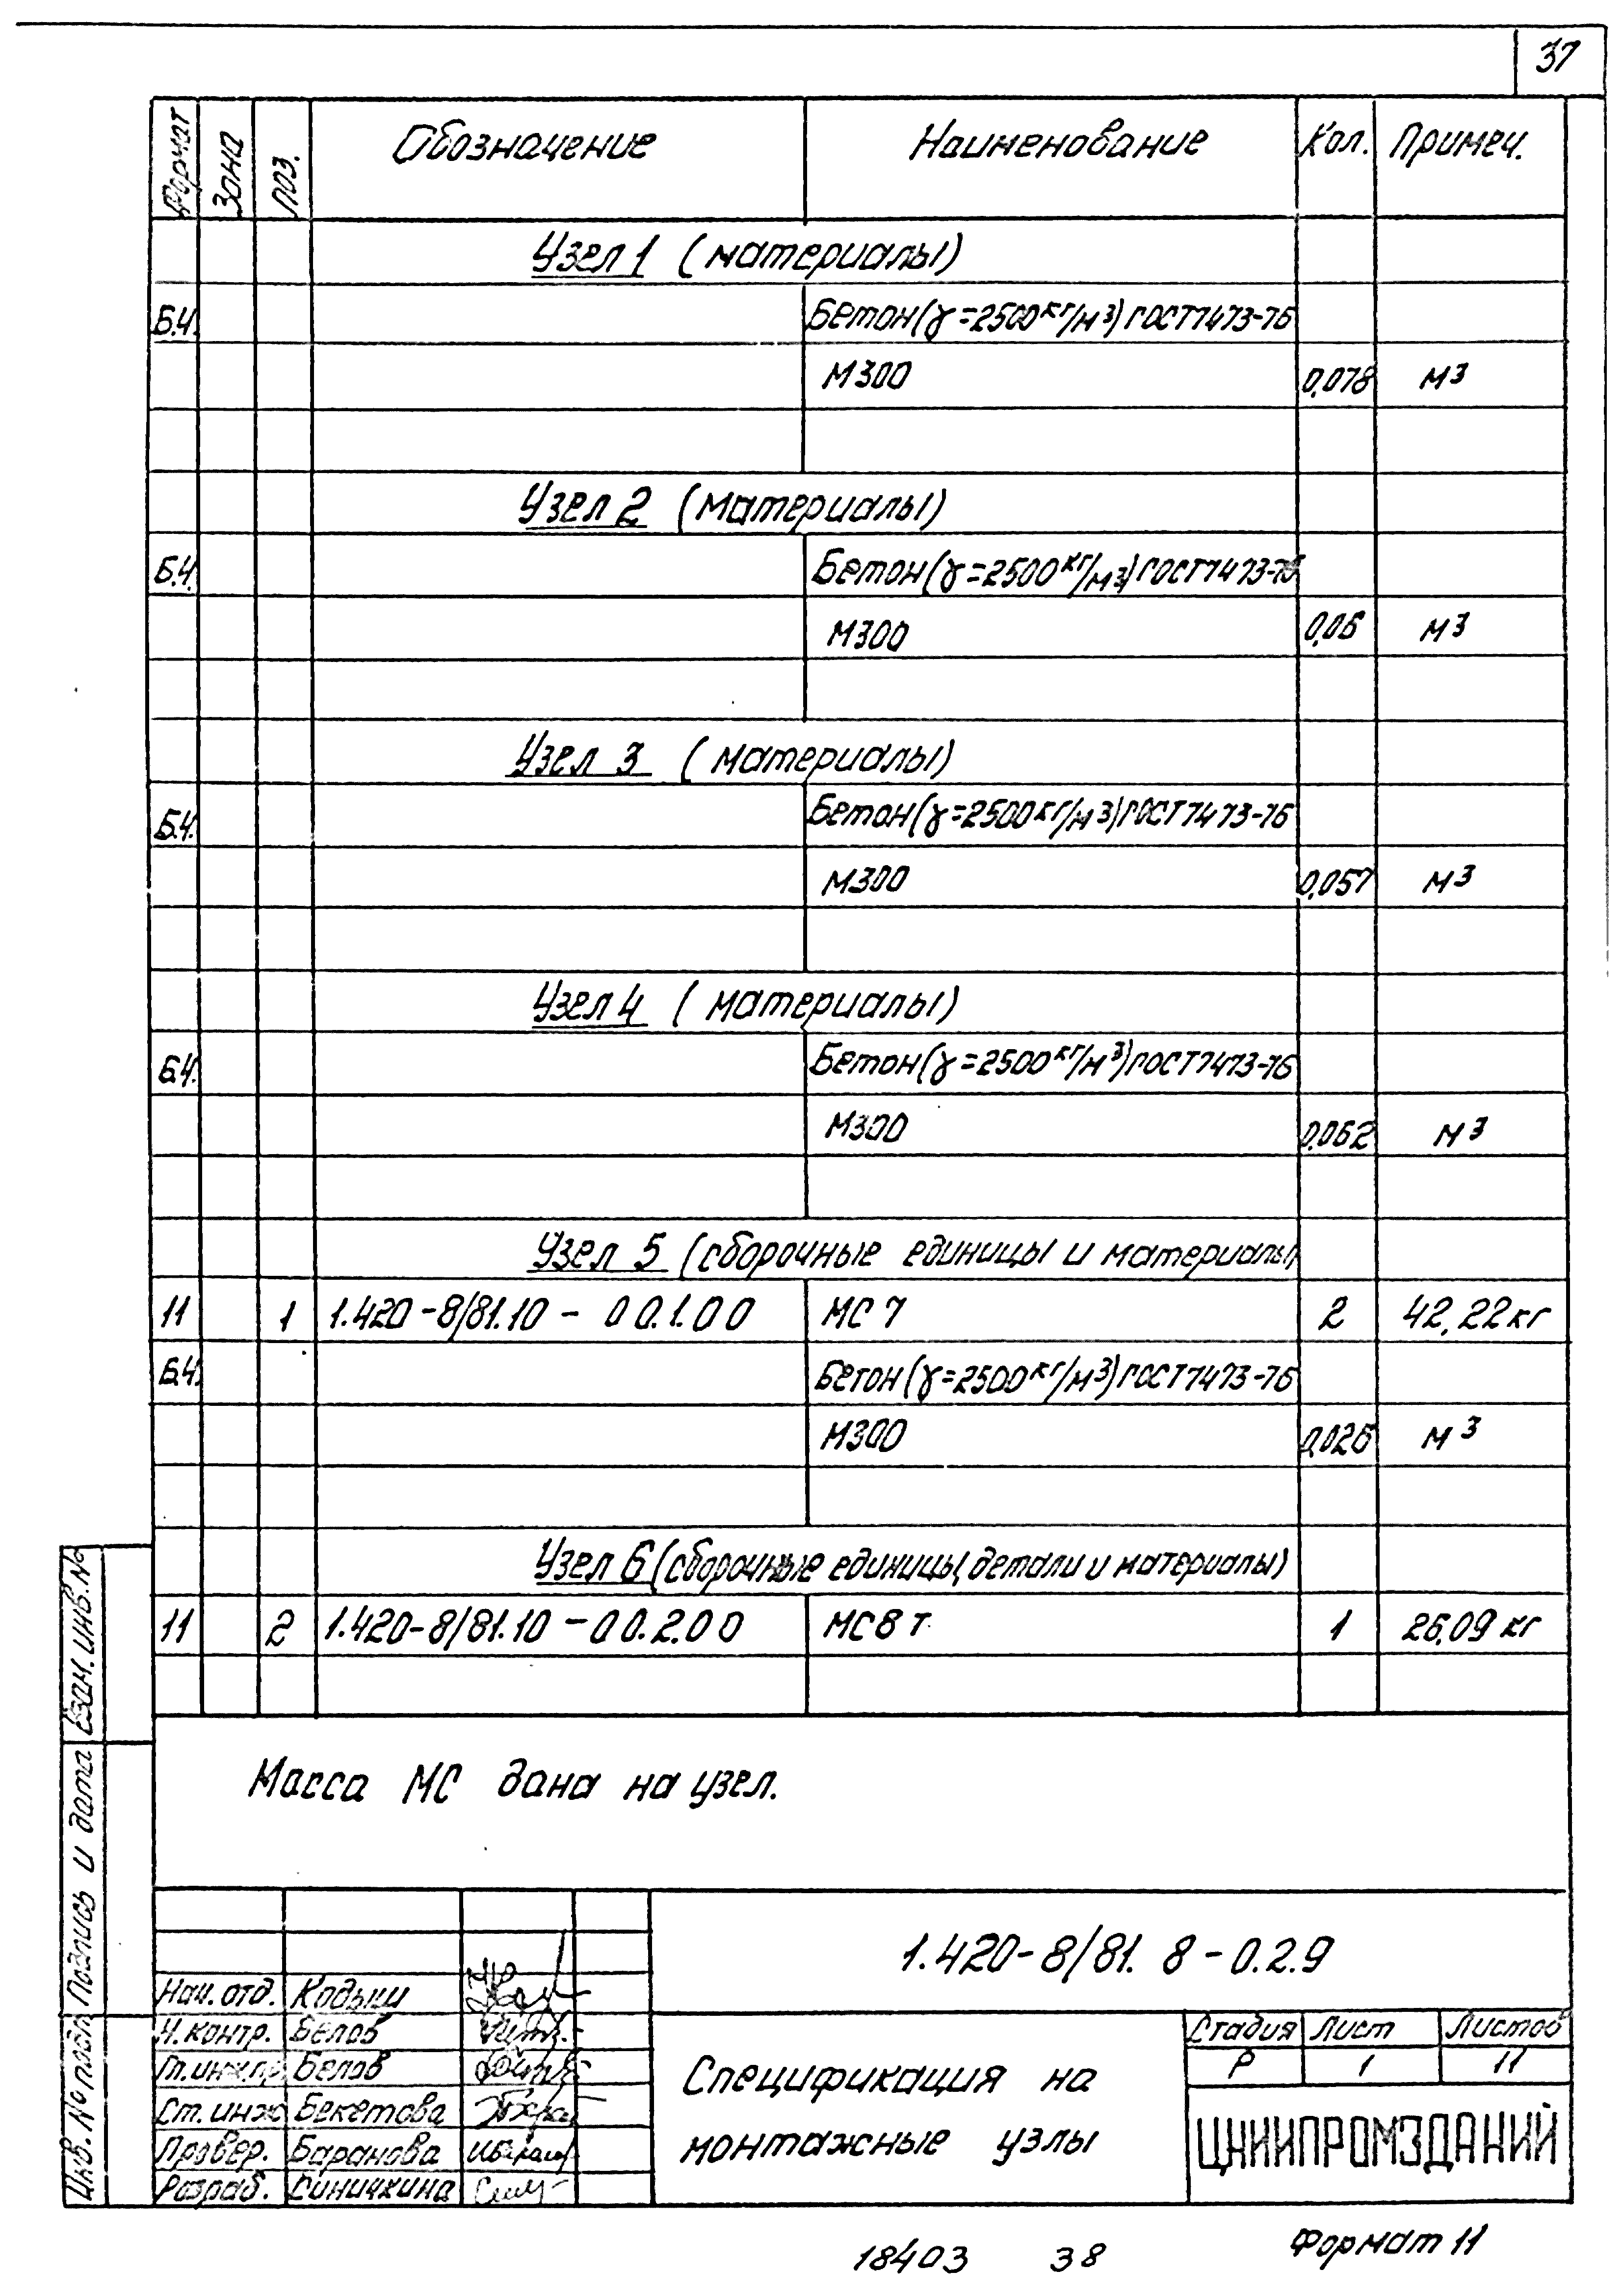 37
Формат Зона Поз. Обозначение Наименование Кол. Примеч.
Узел 1 (материалы)
Б.Ч. Бетон(γ=2500кг/м3)ГОСТ7473-76
М300 0,078 м3
Узел 2 (материалы)
Б.Ч. Бетон(γ=2500кг/м3)ГОСТ7473-76
М300 0,06 м3
Узел 3 (материалы)
Б.Ч. Бетон(γ=2500кг/м3)ГОСТ7473-76
М300 0,057 м3
Узел 4 (материалы)
Б.Ч. Бетон(γ=2500кг/м3)ГОСТ7473-76
М300 0,062 м3
Узел 5 (сборочные единицы и материалы
11 1 1.420-8/81.10-00.1.00 МС 7 2 42,22кг
Б.Ч. Бетон(γ=2500кг/м3)ГОСТ7473-76
М300 0,026 м3
Узел 6 (сборочные единицы, детали и материалы)
11 2 1.420-8/81.10-00.2.00 МС8 т 1 26,09 кг
Масса МС дана на узел.
Взам. инв. №
Подпись и дата
Инв. № подл
1.420-8/81. 8-0.2.9
Нач. отд.
Н. контр. Белов
Гл. инж. пр Белов
Ст. инж Бекетова
Провер. Баранова
Разраб. Синичкина
Спецификация на
монтажные узлы
Стадия Лист Листов
Р 1 11
ЦНИИПРОМЗДАНИЙ
18403 38 Формат 11